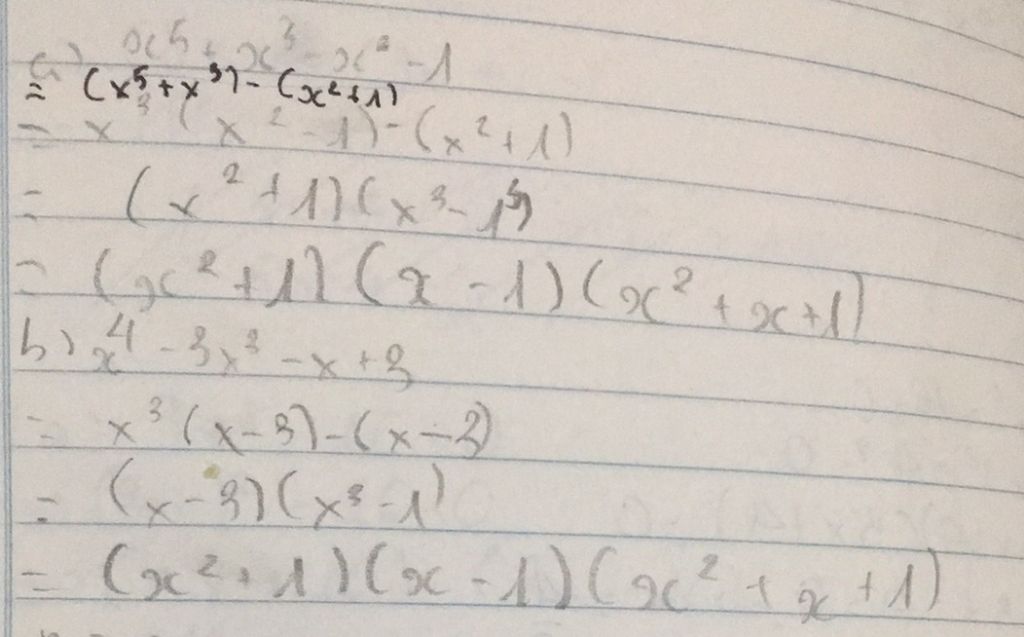 a) x⁵ + x³ - x² - 1
= (x⁵ + x³) - (x² + 1)
= x³ (x² - 1) - (x² + 1)
= (x² + 1) (x³ - 1³)
= (x² + 1) (x - 1) (x² + x + 1)
b) x⁴ - 3x³ - x + 3
= x³ (x - 3) - (x - 3)
= (x - 3) (x³ - 1)
= (x² + 1) (x - 1) (x² + x + 1)